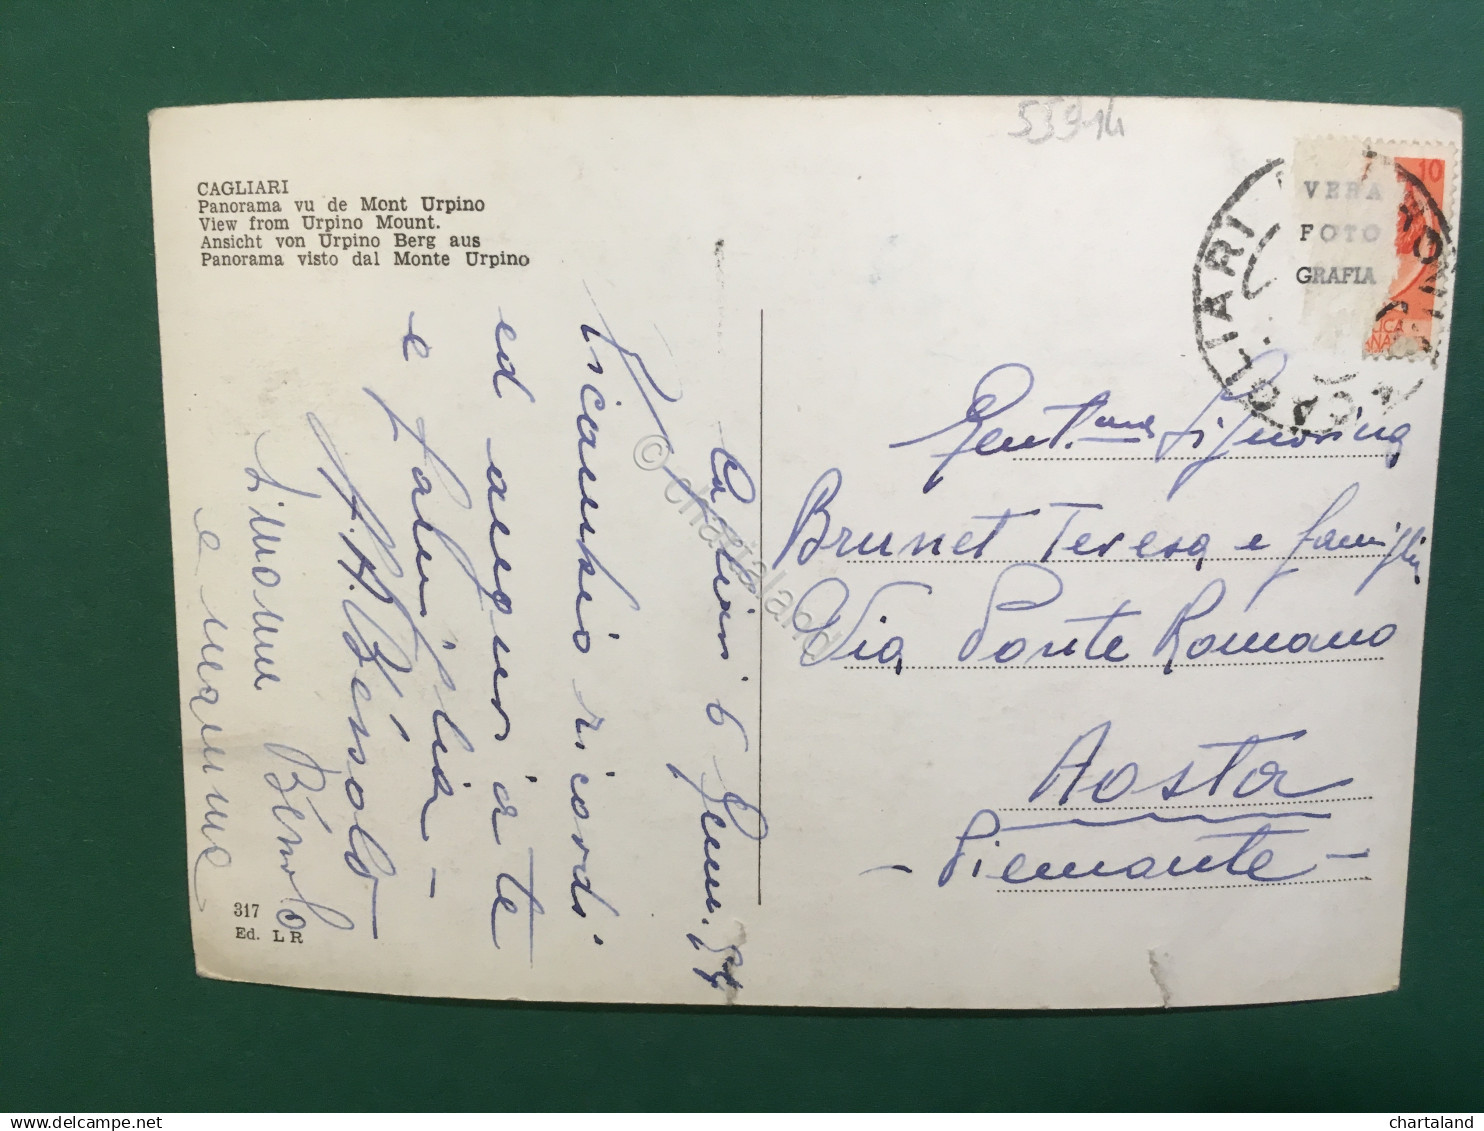 55914
CAGLIARI
Panorama vu de Mont Urpino
View from Urpino Mount.
Ansicht von Urpino Berg aus
Panorama visto dal Monte Urpino
VERA
FOTO
GRAFIA
10
CAGLIARI
Cagliari 6 Genn. 54
Ricambio ricordi
ed auguri a te
e famiglia -
e mamma
Gent.ma Signorina
Brunet Teresa e famiglia
Via Ponte Romano
Aosta
- Piemonte -
317
Ed. L R
© chartaland
chartaland